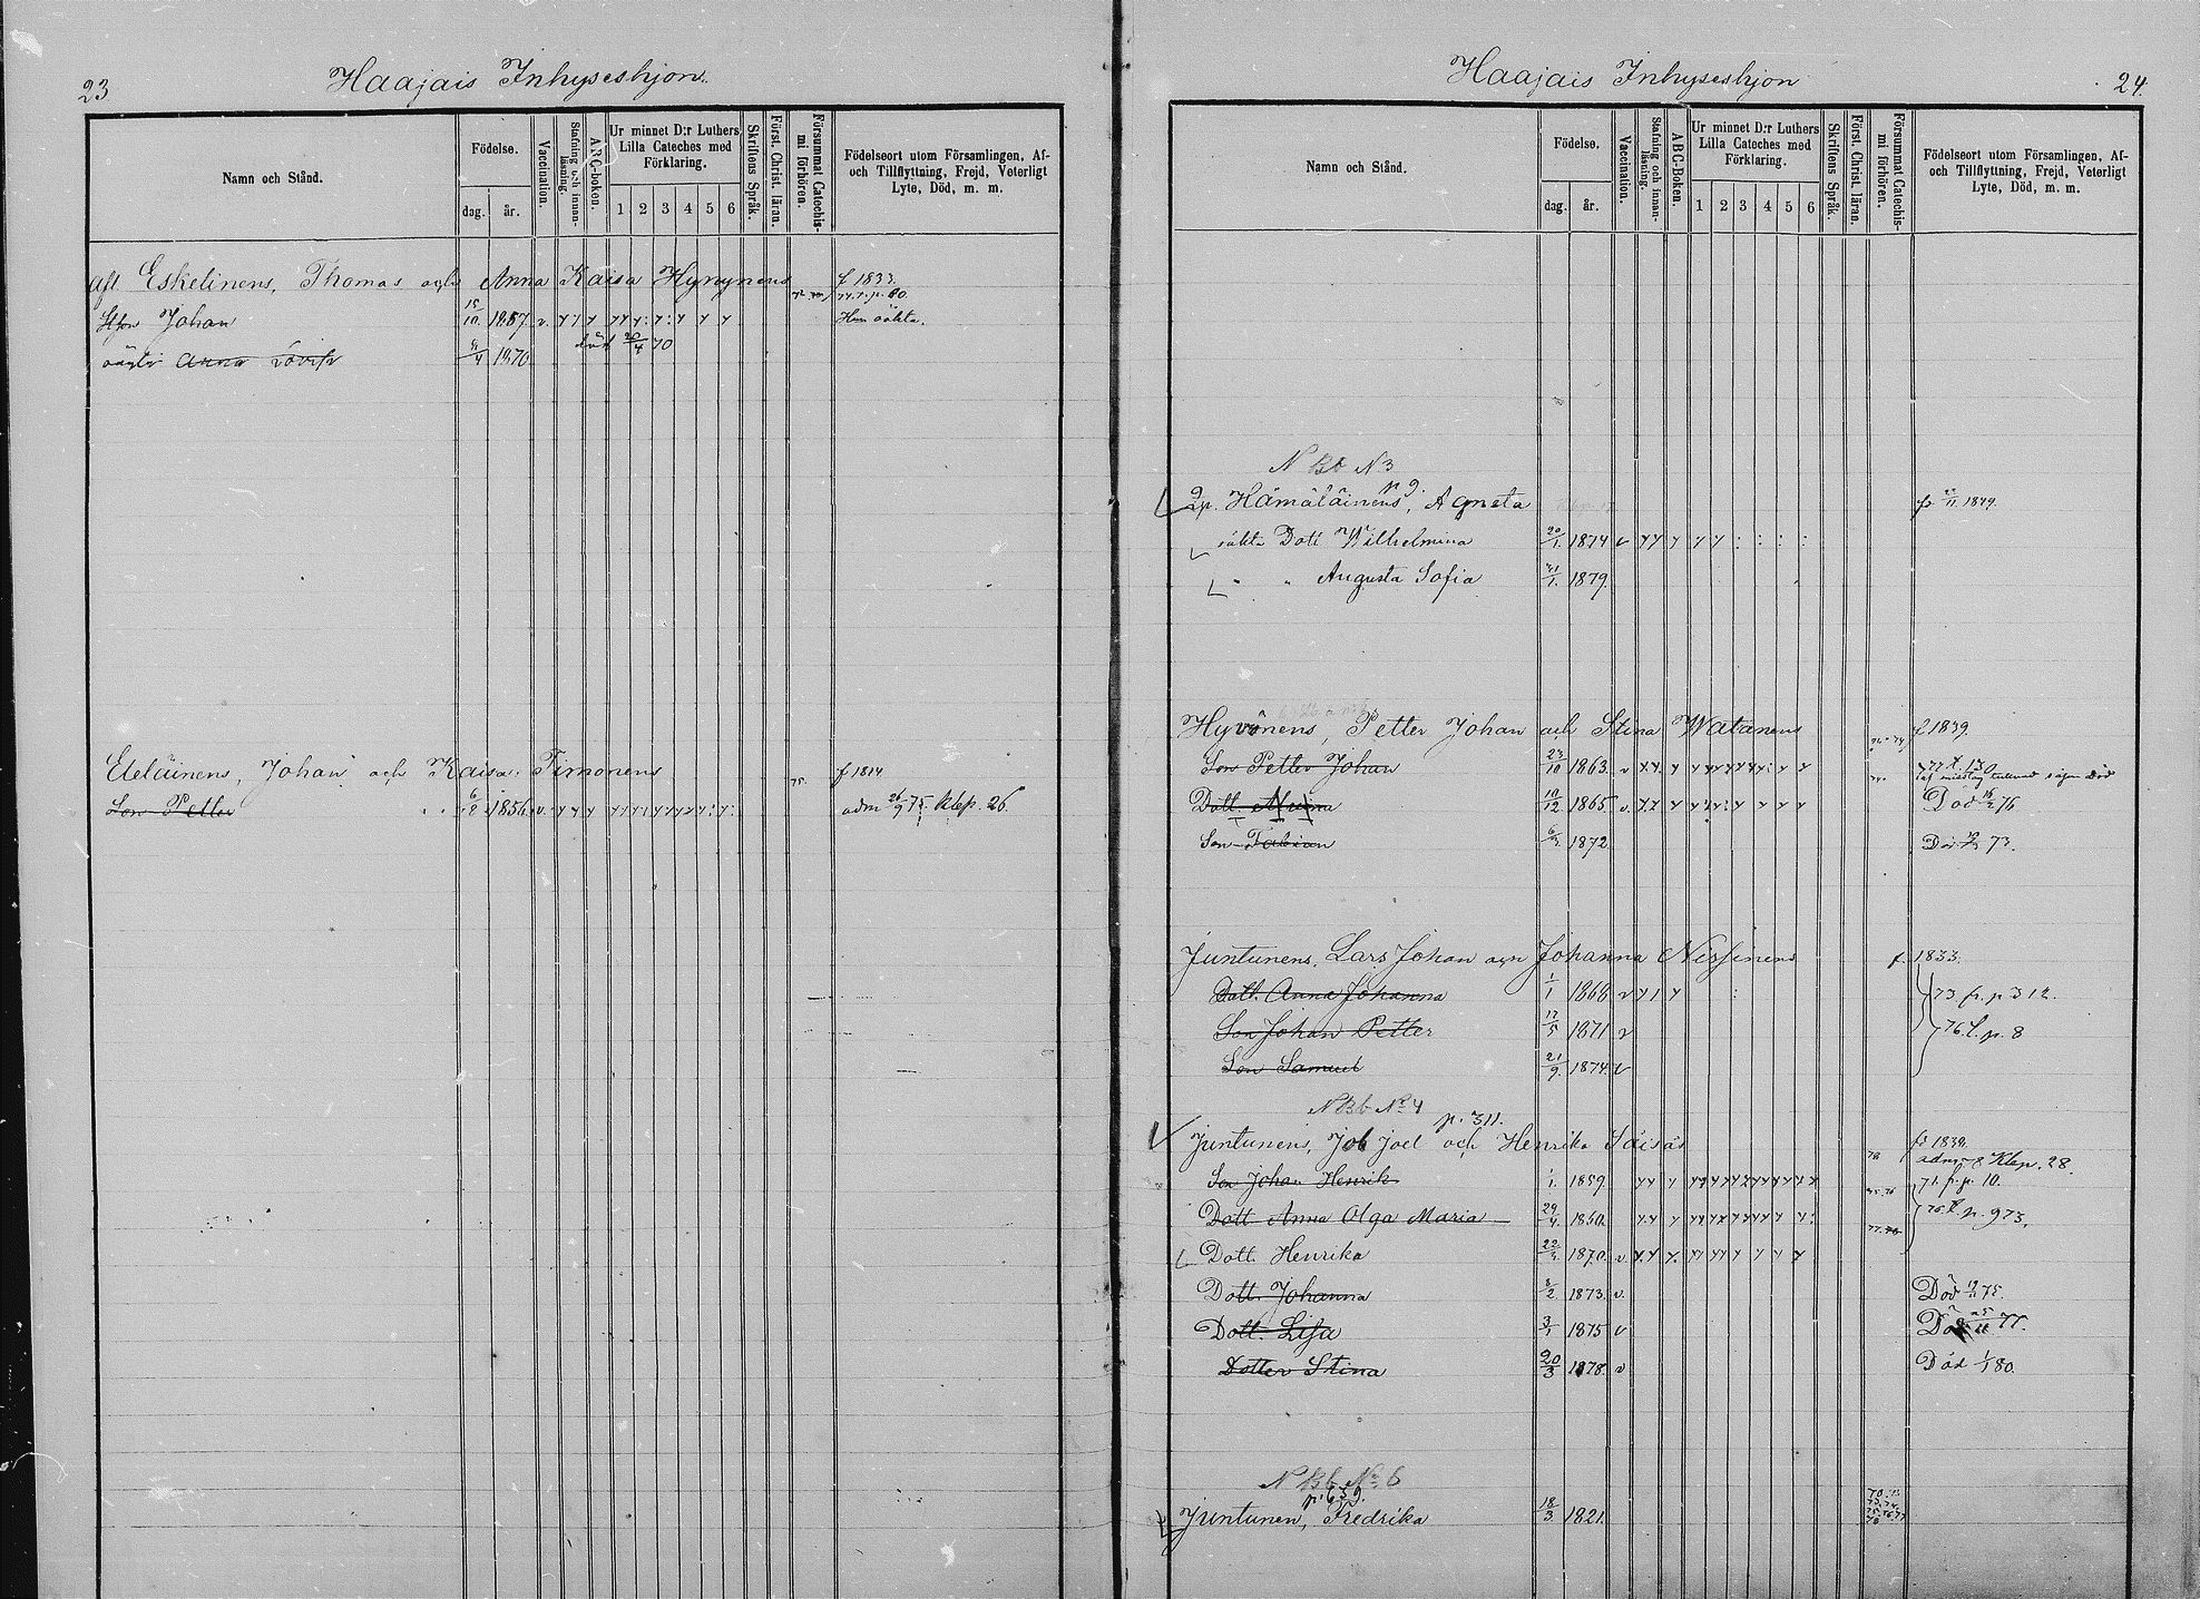 23
Haajais Inhyseshjon.
Namn och Stånd.
Födelse.
dag.
år.
Vaccination.
Stafning och innanläsning.
ABC-boken.
Ur minnet D:r Luthers
Lilla Cateches med
Förklaring.
1 2 3 4 5 6
Skriftens Språk.
Först. Christ. läran.
Försummat Catechismi förhören.
Födelseort utom Församlingen, Af-
och Tillflyttning, Frejd, Veterligt
Lyte, Död, m. m.
Eskelinens, Thomas och Anna Kaisa Hynynens f 1833.
Johan 15/10 1857 v.
Anna Lovisa 1870 död 20/4 70
Eteläinens, Johan och Kaisa Timonens 75. f 1814
Son Petter 1856 v. adm 26/9 75. Klep. 26.
Haajais Inhyseshjon
24.
Namn och Stånd.
Födelse.
dag.
år.
Vaccination.
Stafning och innanläsning.
ABC-Boken.
Ur minnet D:r Luthers
Lilla Cateches med
Förklaring.
1 2 3 4 5 6
Skriftens Språk.
Först. Christ. läran.
Försummat Catechismi förhören.
Födelseort utom Församlingen, Af-
och Tillflyttning, Frejd, Veterligt
Lyte, Död, m. m.
N Bb N 3
p 9.
Hämäläinens, Agneta 1849.
oäkta Dott Wilhelmina 20/1. 1874 v
" " Augusta Sofia 31/1. 1879.
Hyvönens, Petter Johan och Stina Watanens f 1839.
Son Petter Johan 23/10 1863. v
Dott. 10/12 1865. v. Död 76
Son Fabian 1872. 73.
Juntunens, Lars Johan och Johanna Nissinens f. 1833.
Dott. Anna Johanna 1/1 1868 v 73 fr. p 312.
Son Johan Petter 17/5 1871 v 76 t. p. 8
Son Samuel 21/9. 1874. v
N Bb No 4
p. 311.
Juntunens, Job Joel och Henrika Säisäs 78 1839.
Klep. 28.
Son Johan Henrik 1/1. 1859. 71. fr. p. 10.
Dott Anna Olga Maria 29/4. 1860. p. 973.
Dott. Henrika 1870. v.
Dott. Johanna 1873. v. Död 75.
Dott. Lisa 3/1 1875 v 77.
Dotter Stina 20/3 1878. v Död 1/1 80.
N Bb No 6
p. 659.
Juntunen, Fredrika 18/3 1821.